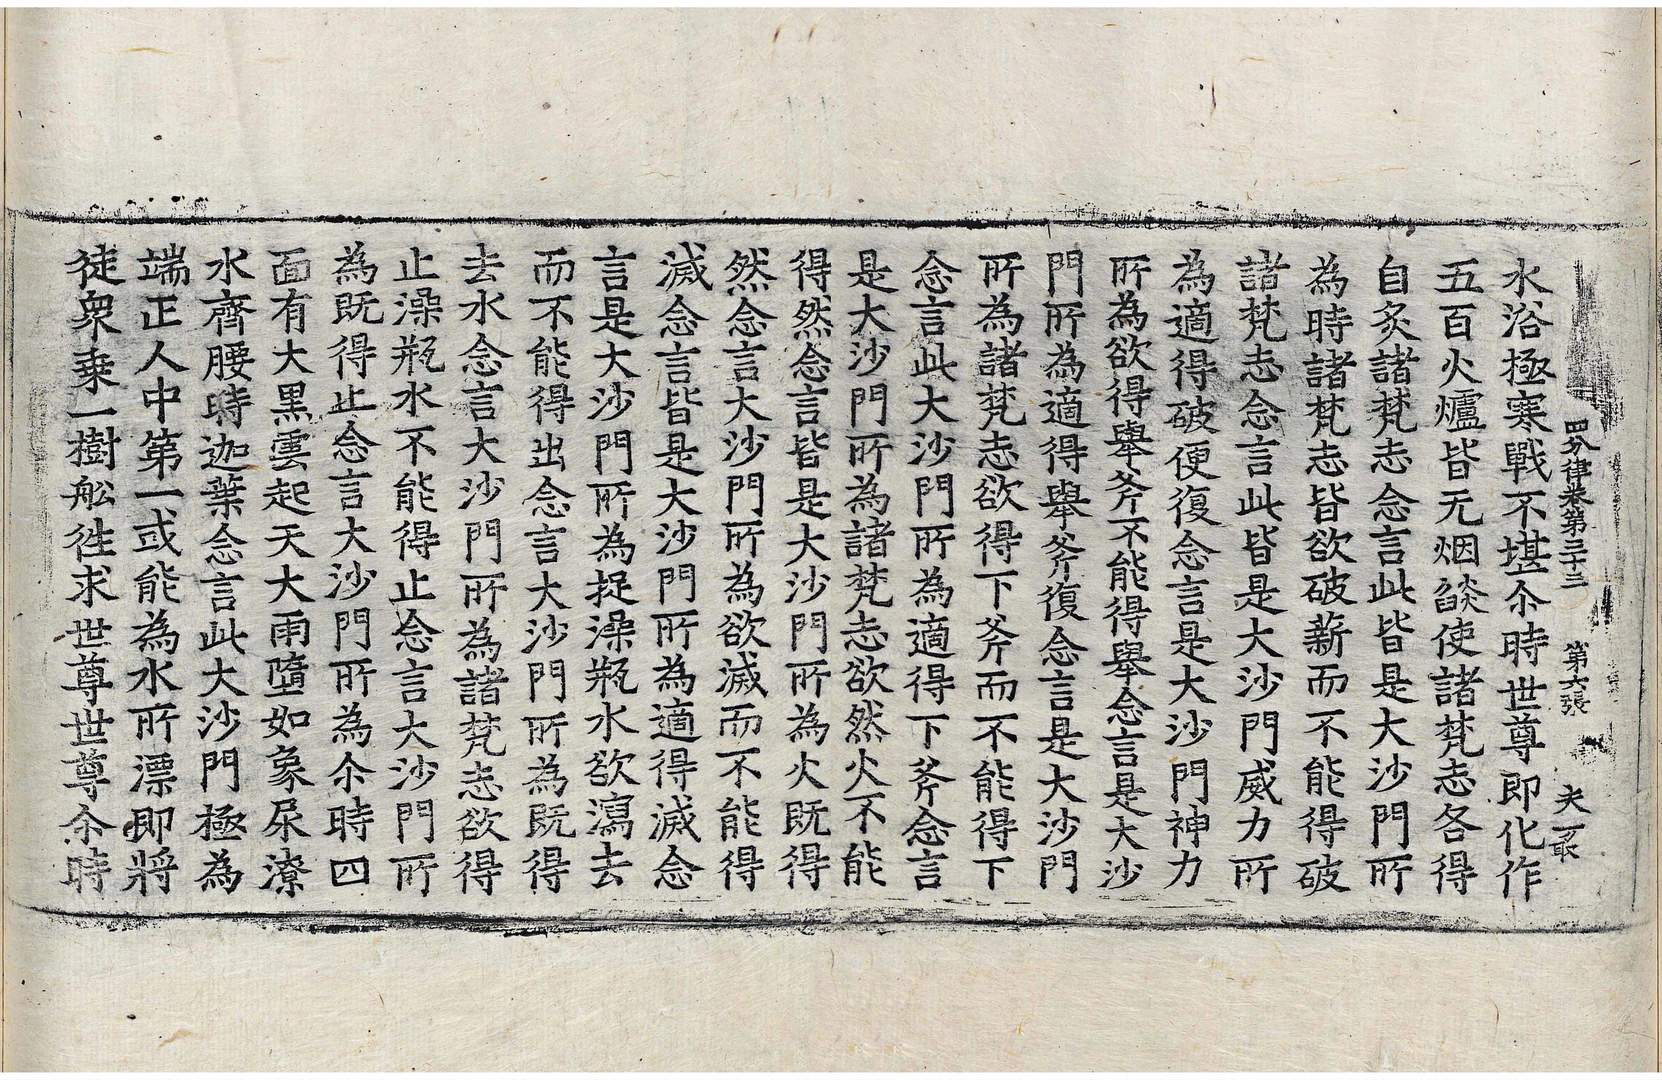 四分律卷第三十三 第六張 夫 一最
水浴極寒戰不堪尒時世尊即化作
五百火爐皆无烟燄使諸梵志各得
自炙諸梵志念言此皆是大沙門所
為時諸梵志皆欲破薪而不能得破
諸梵志念言此皆是大沙門威力所
為適得破便復念言是大沙門神力
所為欲得舉斧不能得舉念言是大沙
門所為適得舉斧復念言是大沙門
所為諸梵志欲得下斧而不能得下
念言此大沙門所為適得下斧念言
是大沙門所為諸梵志欲然火不能
得然念言皆是大沙門所為火既得
然念言大沙門所為欲滅而不能得
滅念言皆是大沙門所為適得滅念
言是大沙門所為捉澡瓶水欲瀉去
而不能得出念言大沙門所為既得
去水念言大沙門所為諸梵志欲得
止澡瓶水不能得止念言大沙門所
為既得止念言大沙門所為尒時四
面有大黑雲起天大雨墮如象尿潦
水齊腰時迦葉念言此大沙門極為
端正人中第一或能為水所漂即將
徒衆乗一樹舩往求世尊世尊尒時